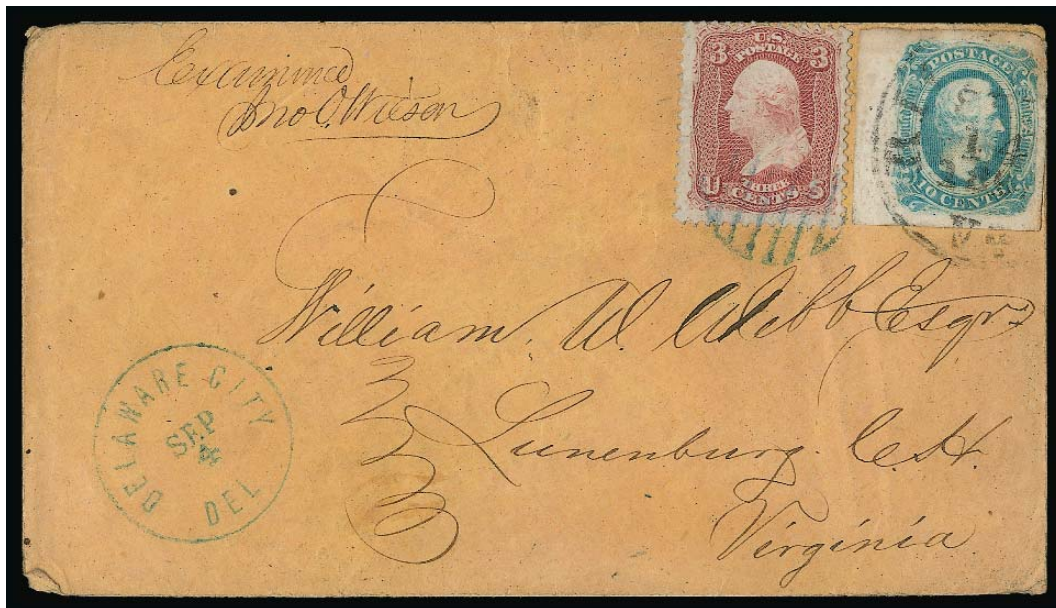 Examined
Jno O. Wilson
U.S.
POSTAGE
3 3
THREE
U CENTS S
POSTAGE
10 CENTS
William W. Webb Esqr
Lunenburg C.H.
Virginia
DELAWARE CITY
SEP
4
DEL